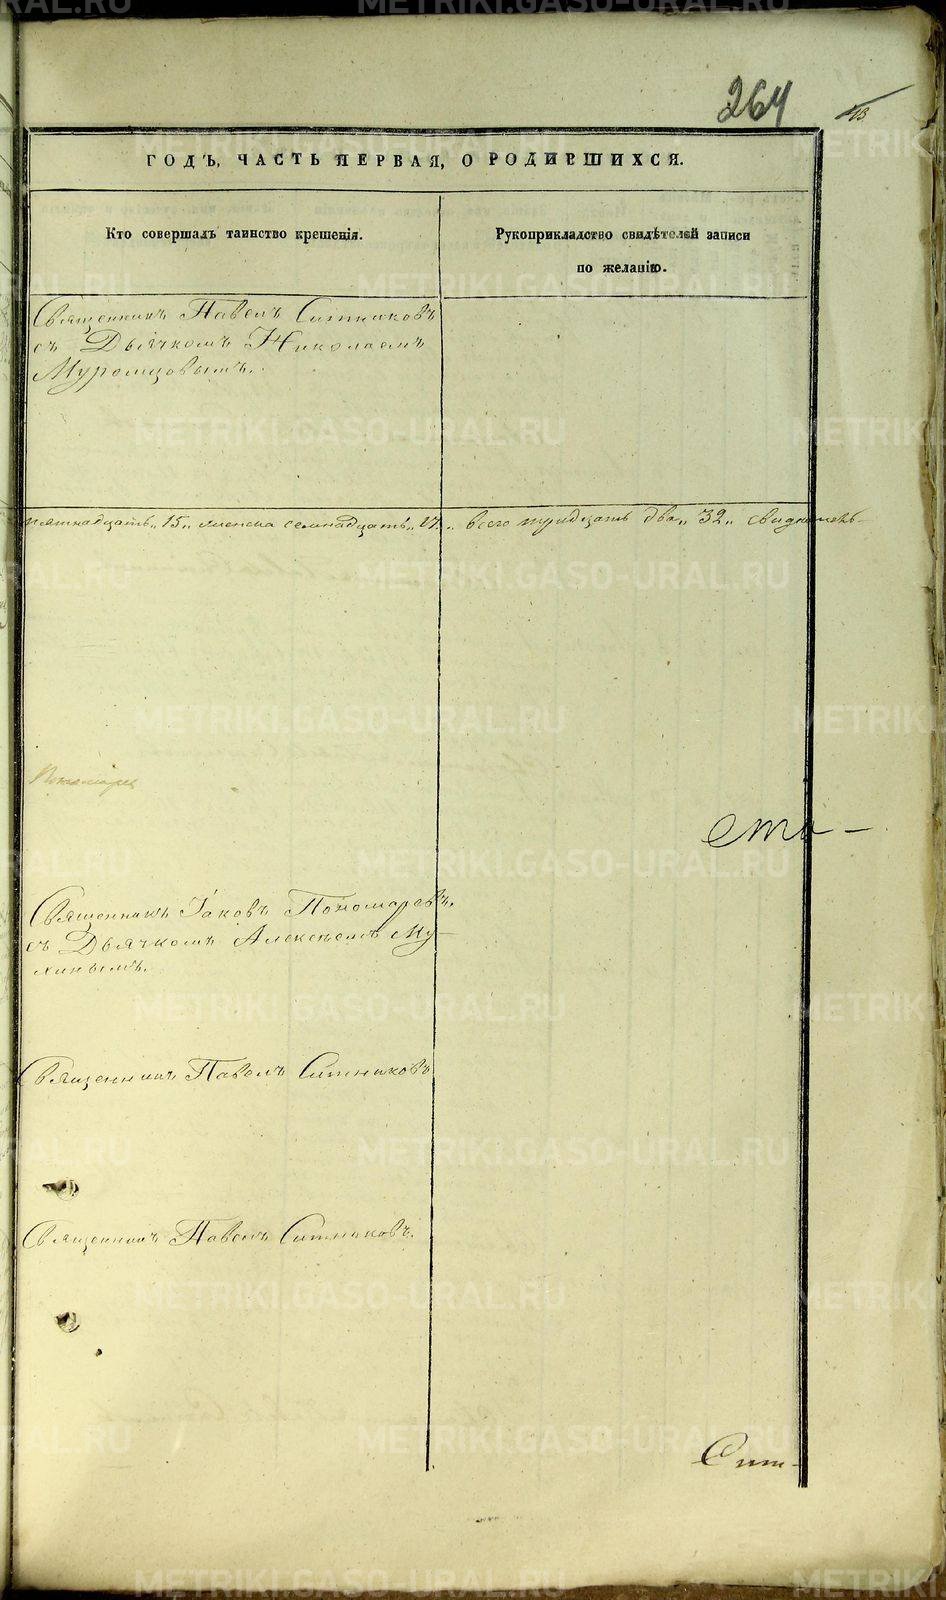 264
13
ГОДЪ, ЧАСТЬ ПЕРВАЯ, О РОДИВШИХСЯ.
Кто совершалъ таинство крещенія.
Рукоприкладство свидѣтелей записи
по желанію.
Священникъ Павелъ Ситниковъ
съ Дьячкомъ Николаемъ
Муромцовымъ.
пятнадцать „15„ женска семнадцать „17„ всего тридцать два „32„
Священникъ Іаковъ Пономаревъ,
съ Дьячкомъ Алексѣемъ Му-
хинымъ.
Священникъ Павелъ Ситниковъ
Священникъ Павелъ Ситниковъ.
Сит-
METRIKI.GASO-URAL.RU